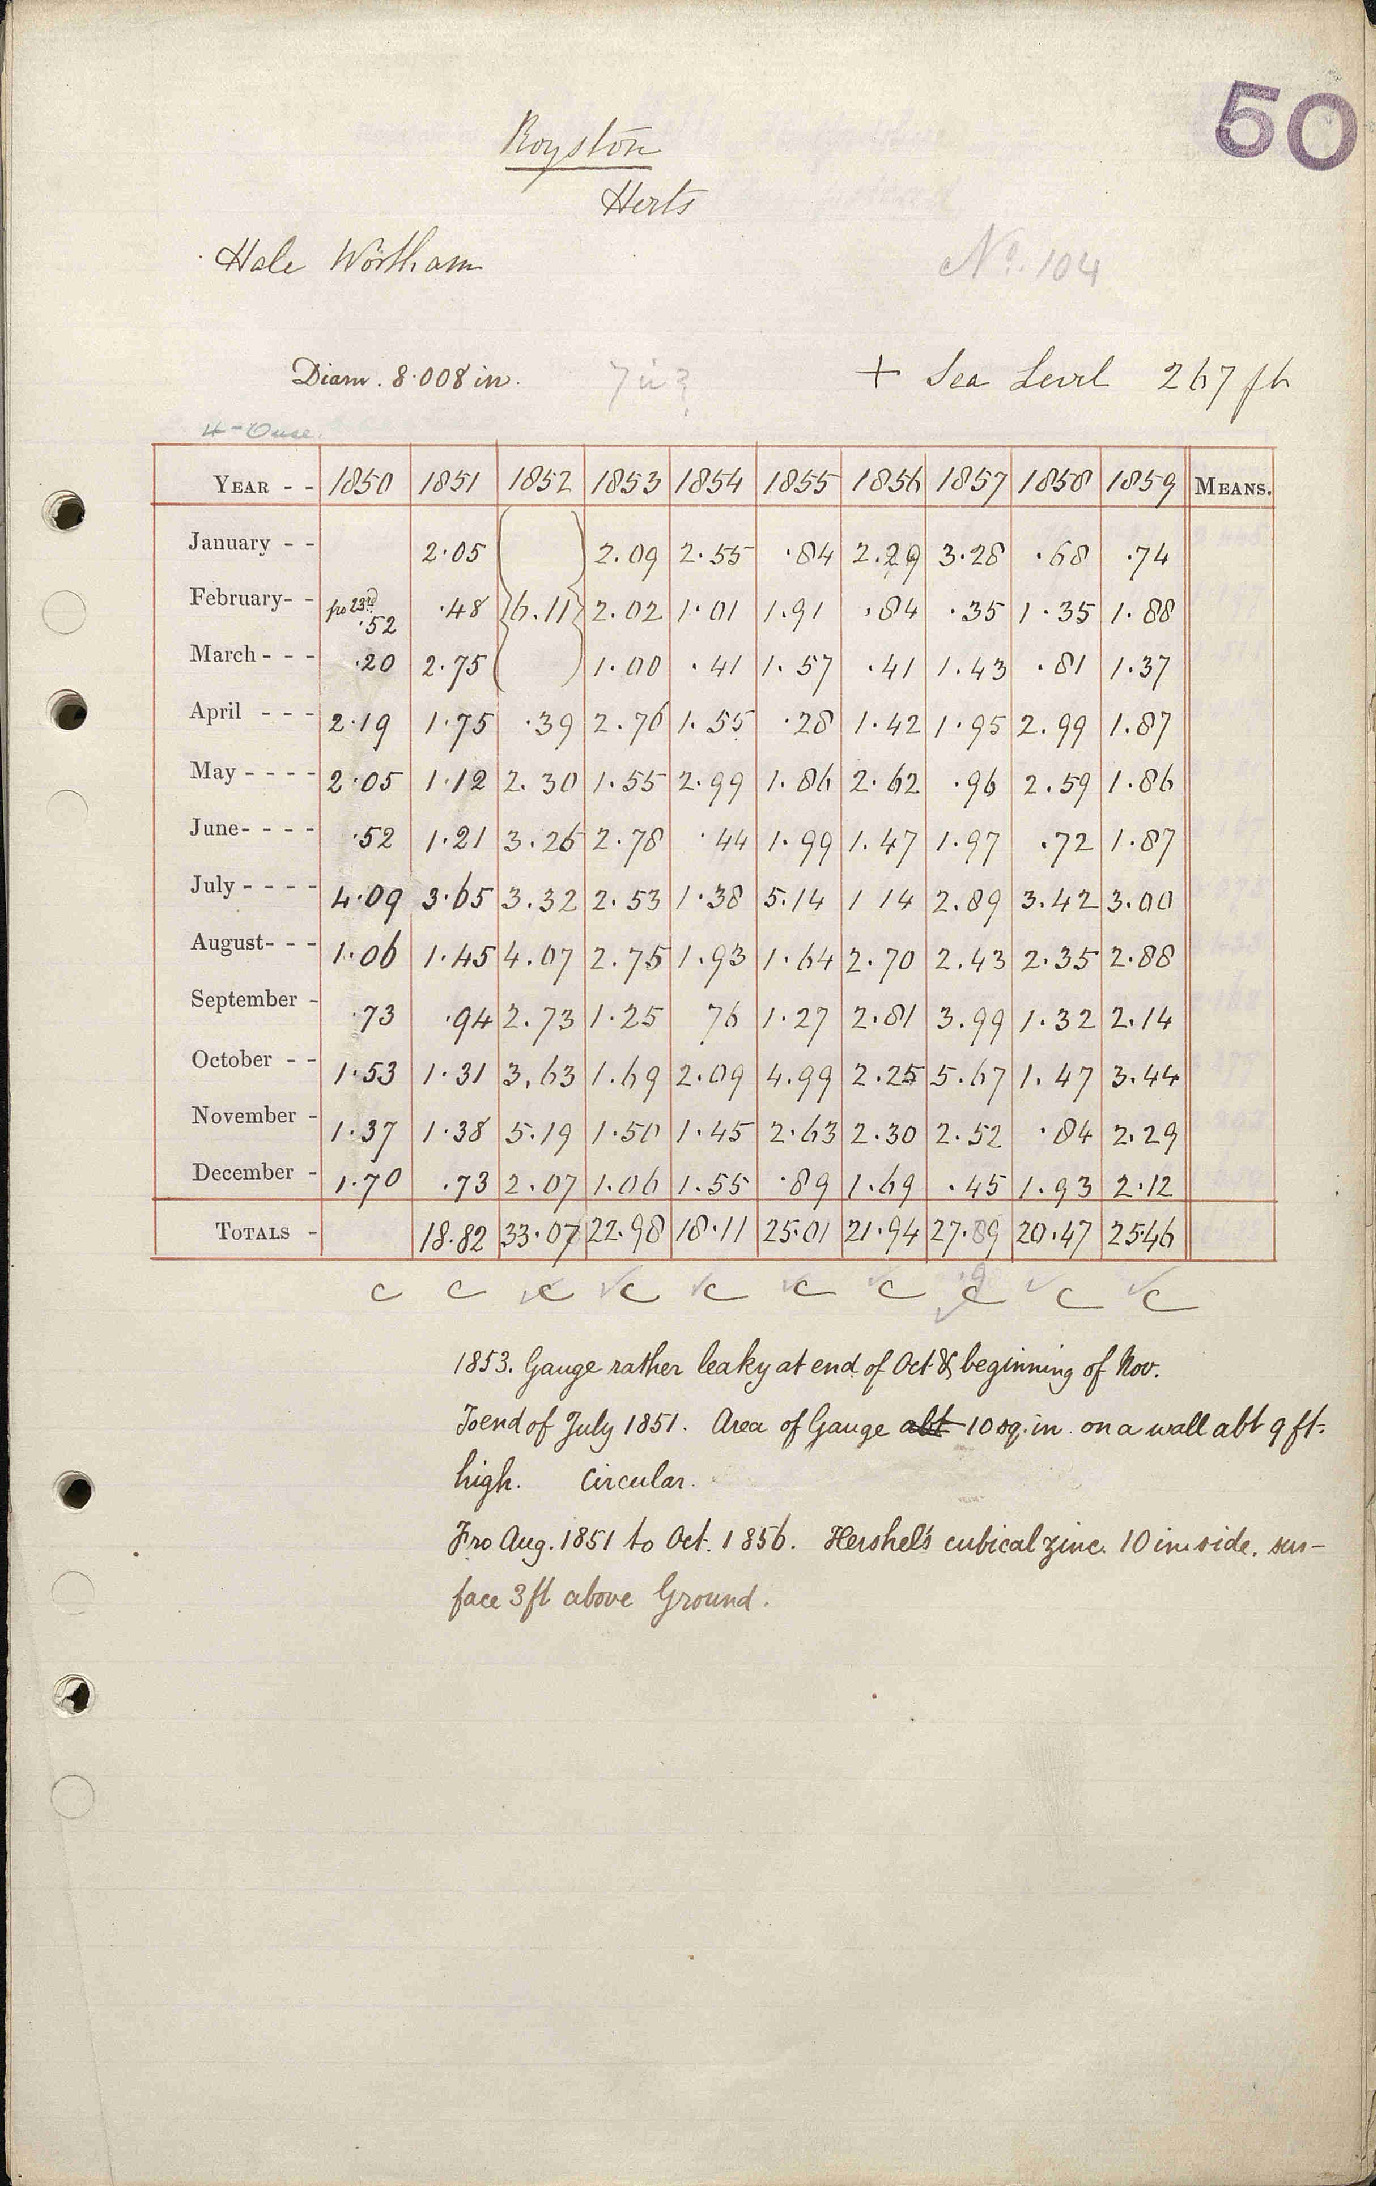 50
Royston
Herts
Hale Wortham
No. 104
Diam. 8.008 in.
7 in?
+ Sea Level 267 ft
4-Ouse
YEAR - - 1850 1851 1852 1853 1854 1855 1856 1857 1858 1859 MEANS.
January - - 2.05 2.09 2.55 .84 2.29 3.28 .68 .74
February- - fro 23rd .52 .48 6.11 2.02 1.01 1.91 .84 .35 1.35 1.88
March - - - .20 2.75 1.00 .41 1.57 .41 1.43 .81 1.37
April - - - 2.19 1.75 .39 2.76 1.55 .28 1.42 1.95 2.99 1.87
May - - - - 2.05 1.12 2.30 1.55 2.99 1.86 2.62 .96 2.59 1.86
June- - - - .52 1.21 3.26 2.78 .44 1.99 1.47 1.97 .72 1.87
July - - - - 4.09 3.65 3.32 2.53 1.38 5.14 1 14 2.89 3.42 3.00
August- - - 1.06 1.45 4.07 2.75 1.93 1.64 2.70 2.43 2.35 2.88
September - .73 .94 2.73 1.25 76 1.27 2.81 3.99 1.32 2.14
October - - 1.53 1.31 3.63 1.69 2.09 4.99 2.25 5.67 1.47 3.44
November - 1.37 1.38 5.19 1.50 1.45 2.63 2.30 2.52 .84 2.29
December - 1.70 .73 2.07 1.06 1.55 .89 1.69 .45 1.93 2.12
TOTALS - 18.82 33.07 22.98 18.11 25.01 21.94 27.89 20.47 25.46
c c c c c c c c c c
1853. Gauge rather leaky at end of Oct & beginning of Nov.
To end of July 1851. Area of Gauge abt 10 sq. in. on a wall abt 9 ft-
high. Circular.
Fro Aug. 1851 to Oct. 1856. Hershel's cubical zinc 10 in side. sur-
face 3 ft above Ground.